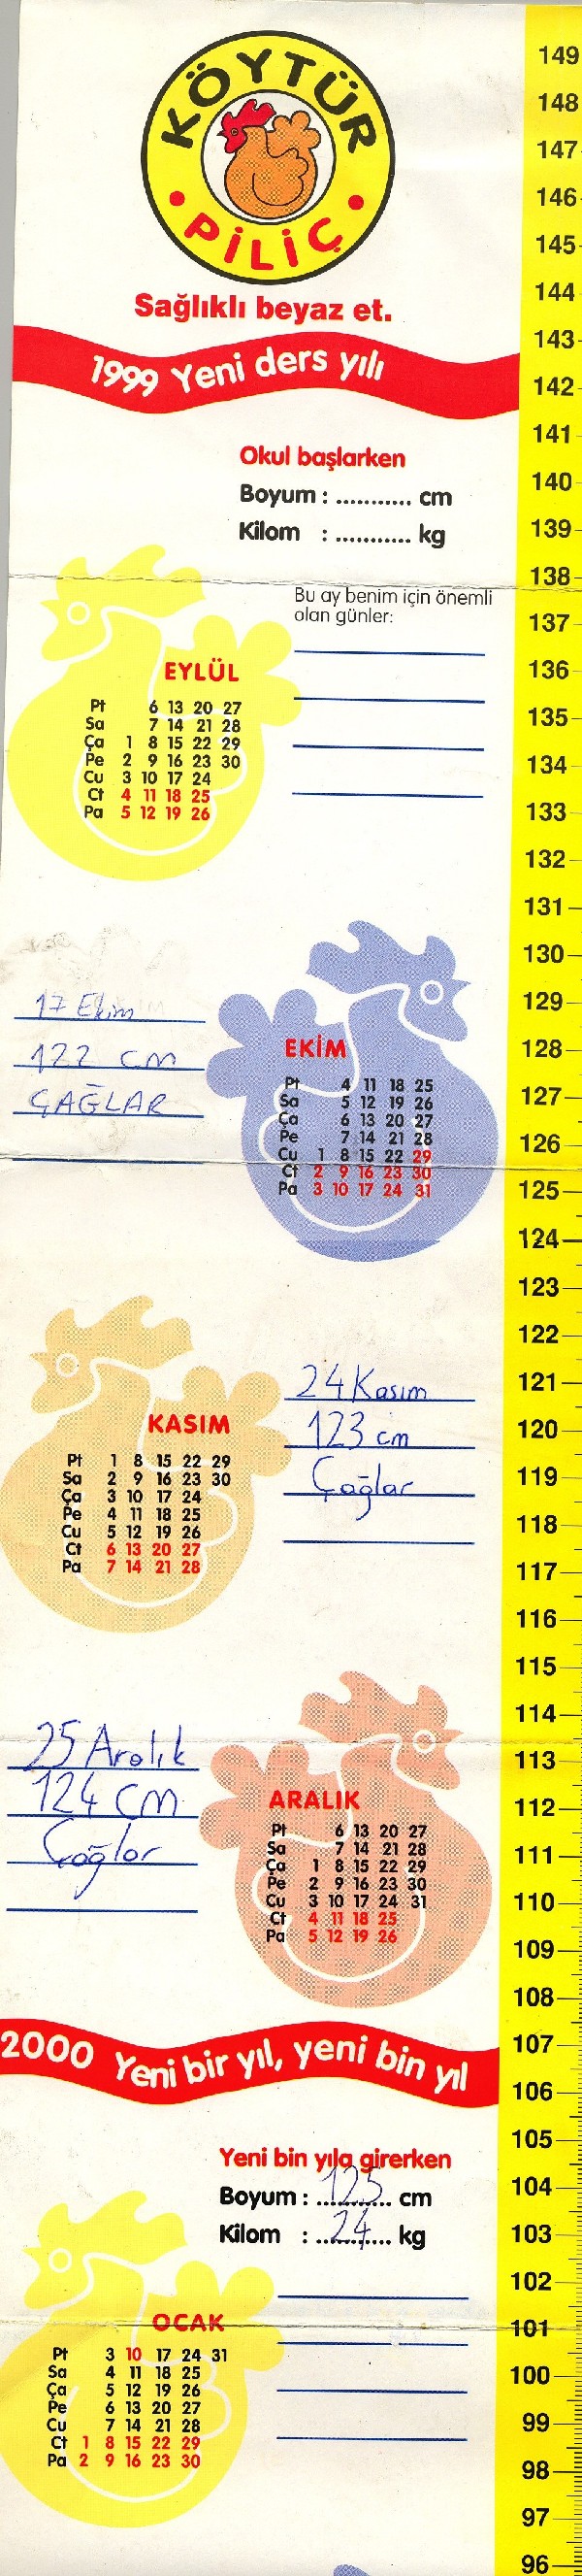 KÖYTÜR
PİLİÇ
Sağlıklı beyaz et.
1999 Yeni ders yılı
Okul başlarken
Boyum : ........... cm
Kilom : ........... kg
Bu ay benim için önemli
olan günler:
EYLÜL
Pt 6 13 20 27
Sa 7 14 21 28
Ça 1 8 15 22 29
Pe 2 9 16 23 30
Cu 3 10 17 24
Ct 4 11 18 25
Pa 5 12 19 26
17 Ekim
122 cm
ÇAĞLAR
EKİM
Pt 4 11 18 25
Sa 5 12 19 26
Ça 6 13 20 27
Pe 7 14 21 28
Cu 1 8 15 22 29
Ct 2 9 16 23 30
Pa 3 10 17 24 31
24 Kasım
123 cm
Çağlar
KASIM
Pt 1 8 15 22 29
Sa 2 9 16 23 30
Ça 3 10 17 24
Pe 4 11 18 25
Cu 5 12 19 26
Ct 6 13 20 27
Pa 7 14 21 28
25 Aralık
124 cm
Çağlar
ARALIK
Pt 6 13 20 27
Sa 7 14 21 28
Ça 1 8 15 22 29
Pe 2 9 16 23 30
Cu 3 10 17 24 31
Ct 4 11 18 25
Pa 5 12 19 26
2000 Yeni bir yıl, yeni bin yıl
Yeni bin yıla girerken
Boyum : 125 cm
Kilom : 24 kg
OCAK
Pt 3 10 17 24 31
Sa 4 11 18 25
Ça 5 12 19 26
Pe 6 13 20 27
Cu 7 14 21 28
Ct 1 8 15 22 29
Pa 2 9 16 23 30
149
148
147
146
145
144
143
142
141
140
139
138
137
136
135
134
133
132
131
130
129
128
127
126
125
124
123
122
121
120
119
118
117
116
115
114
113
112
111
110
109
108
107
106
105
104
103
102
101
100
99
98
97
96